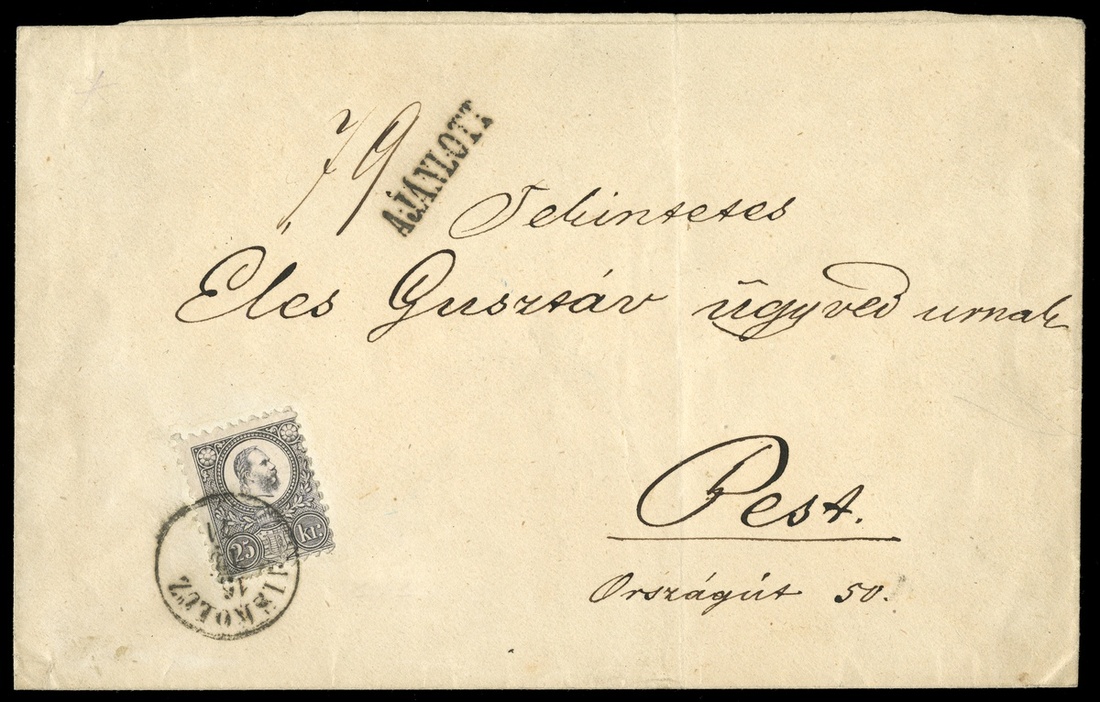 79
AJÁNLOTT
Tekintetes
Éles Gusztáv ügyvéd urnak
25 kr.
MISKOLCZ
16
Pest.
Országút 50.